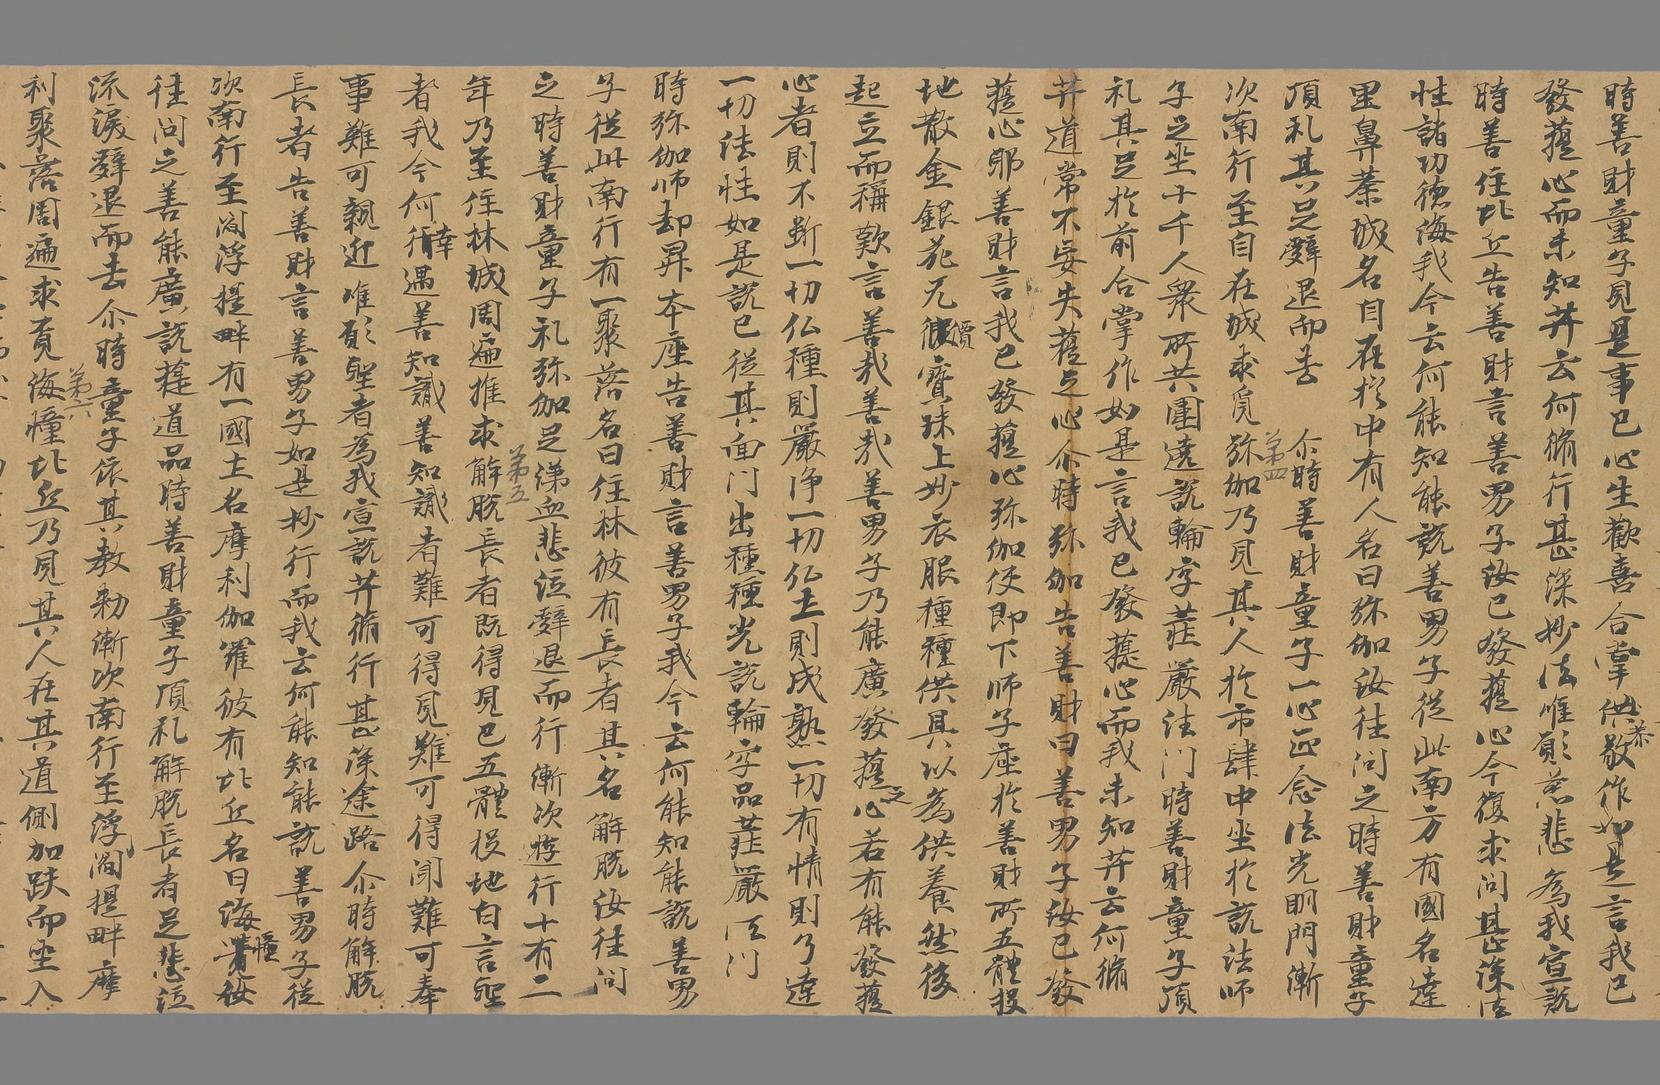 時善財童子見是事已心生歡喜合掌供恭敬作如是言我已
發菩提心而未知菩薩云何脩行甚深妙法唯願慈悲為我宣說
時善住比丘告善財言善男子汝已發菩提心今復求問甚深法
性諸功德海我今云何能知能說善男子從此南方有國名達
里鼻荼城名自在於中有人名曰弥伽汝往問之時善財童子
頂礼其足辭退而去 尒時善財童子一心正念法光明門漸
第四
次南行至自在城求覓弥伽乃見其人於市肆中坐於說法師
子之坐十千人衆所共圍遶說輪字莊嚴法門時善財童子頂
礼其足於前合掌作如是言我已發菩提心而我未知菩薩云何脩
菩薩道常不妄失菩提之心尒時弥伽告善財曰善男子汝已發
菩提心耶善財言我已發菩提心弥伽便即下師子座於善財所五體投
地散金銀花无價寶珠上妙衣服種種供具以為供養然後
起立而稱歎言善哉善哉善男子乃能廣發菩提之心若有能發菩提
心者則不斷一切仏種則嚴淨一切仏土則成熟一切有情則了達
一切法性如是說已從其面門出種種光說輪字品莊嚴法門
時弥伽師却昇本座告善財言善男子我今云何能知能說善男
子從此南行有一聚落名曰住林彼有長者其名解脫汝往問
之時善財童子礼弥伽足渧血悲泣辭退而行漸次遊行十有二
第五
年乃至住林城周遍推求解脫長者既得見已五體投地白言聖
者我今何幸遇善知識善知識者難可得見難可得聞難可奉
事難可親近唯願聖者為我宣說菩薩脩行甚深途路尒時解脫
長者告善財言善男子如是妙行而我云何能知能說善男子從
次南行至閻浮提畔有一國土名摩利伽羅彼有比丘名曰海幢汝
往問之善能廣說菩提道品時善財童子頂礼解脫長者足悲泣
流淚辭退而去尒時童子依其教勑漸次南行至浮閻提畔摩
第六
利聚落周遍求覓海幢比丘乃見其人在其道側加趺而坐入